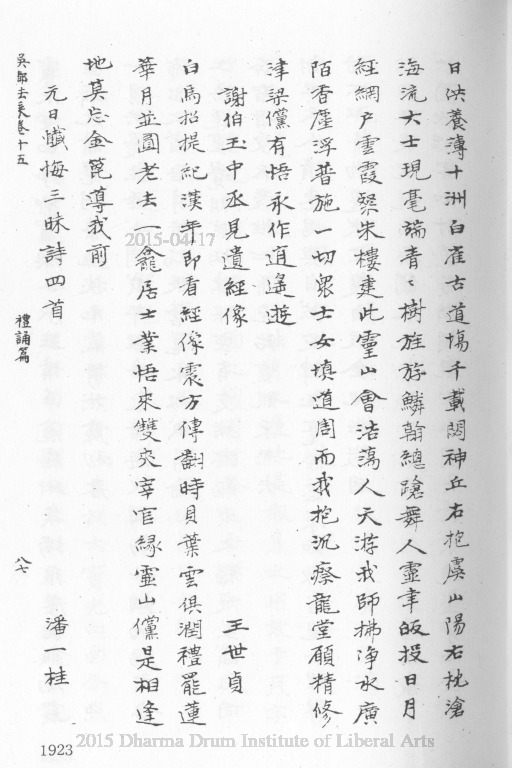 日供養薄十洲白雀古道場千載閟神丘右抱虞山陽右枕滄
海流大士現毫端青〻樹旌斿鱗翰總蹌舞人靈聿皈投日月
經綱戶雲霞槩朱樓建此靈山會浩蕩人天游我師拂淨水廣
陌香塵浮普施一切眾士女填道周而我抱沉瘵龍堂願精修
津梁儻有悟永作逍遙遊
謝伯玉中丞見遺經像
王世貞
白馬招提紀漢年即看經像震方傳翻時貝葉雲俱潤禮罷蓮
華月並圓老去一龕居士業悟來雙樹宰官緣靈山儻是相逢
地莫忘金篦導我前
元日懺悔三昧詩四首
潘一桂
吳都法乘卷十五
禮誦篇
八七
1923
2015-04-17
2015 Dharma Drum Institute of Liberal Arts